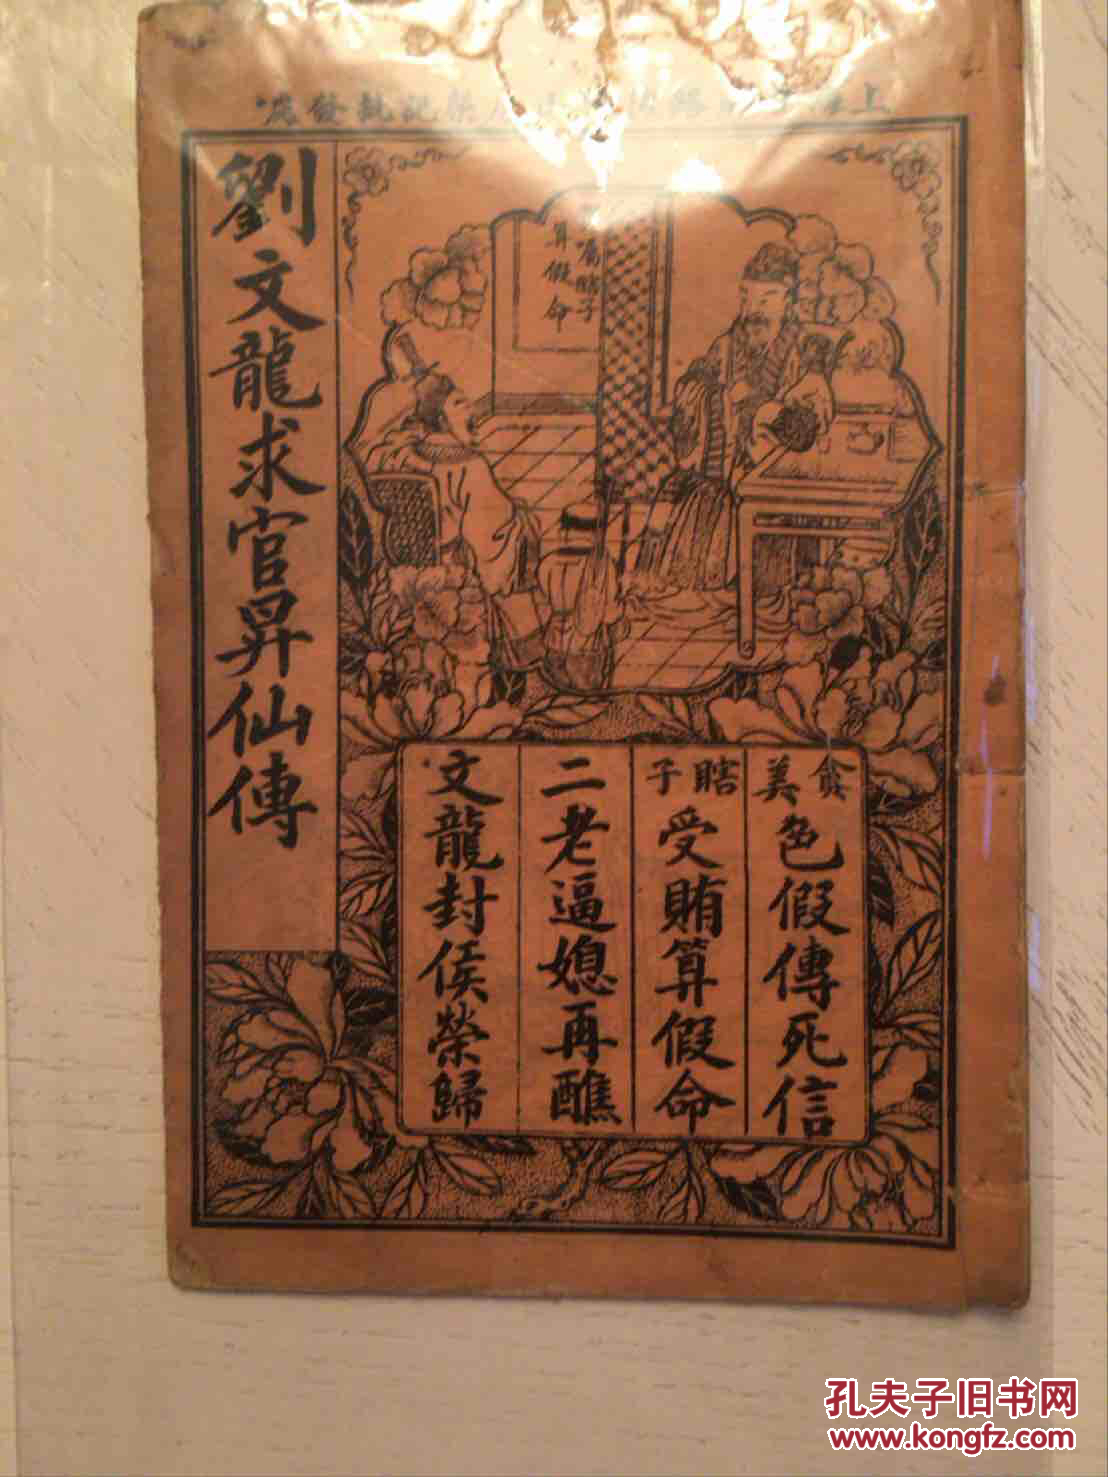 劉文龍求官昇仙傳
瞎子
算假命
貪美色假傳死信
瞎子受賄算假命
二老逼媳再醮
文龍封侯榮歸
孔夫子旧书网
www.kongfz.com